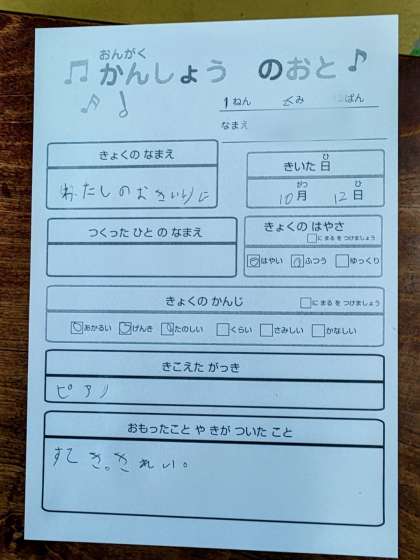 おんがく
かんしょう のおと
1ねん 2くみ ばん
なまえ
きょくの なまえ
わたしのおきにいりに
きいた 日
ひ
10月 12日
がつ ひ
つくった ひと の なまえ
きょくの はやさ
に まる を つけましょう
はやい ふつう ゆっくり
きょくの かんじ
に まる を つけましょう
あかるい げんき たのしい くらい さみしい かなしい
きこえた がっき
ピアノ
おもったこと や きが ついた こと
すてき。きれい。